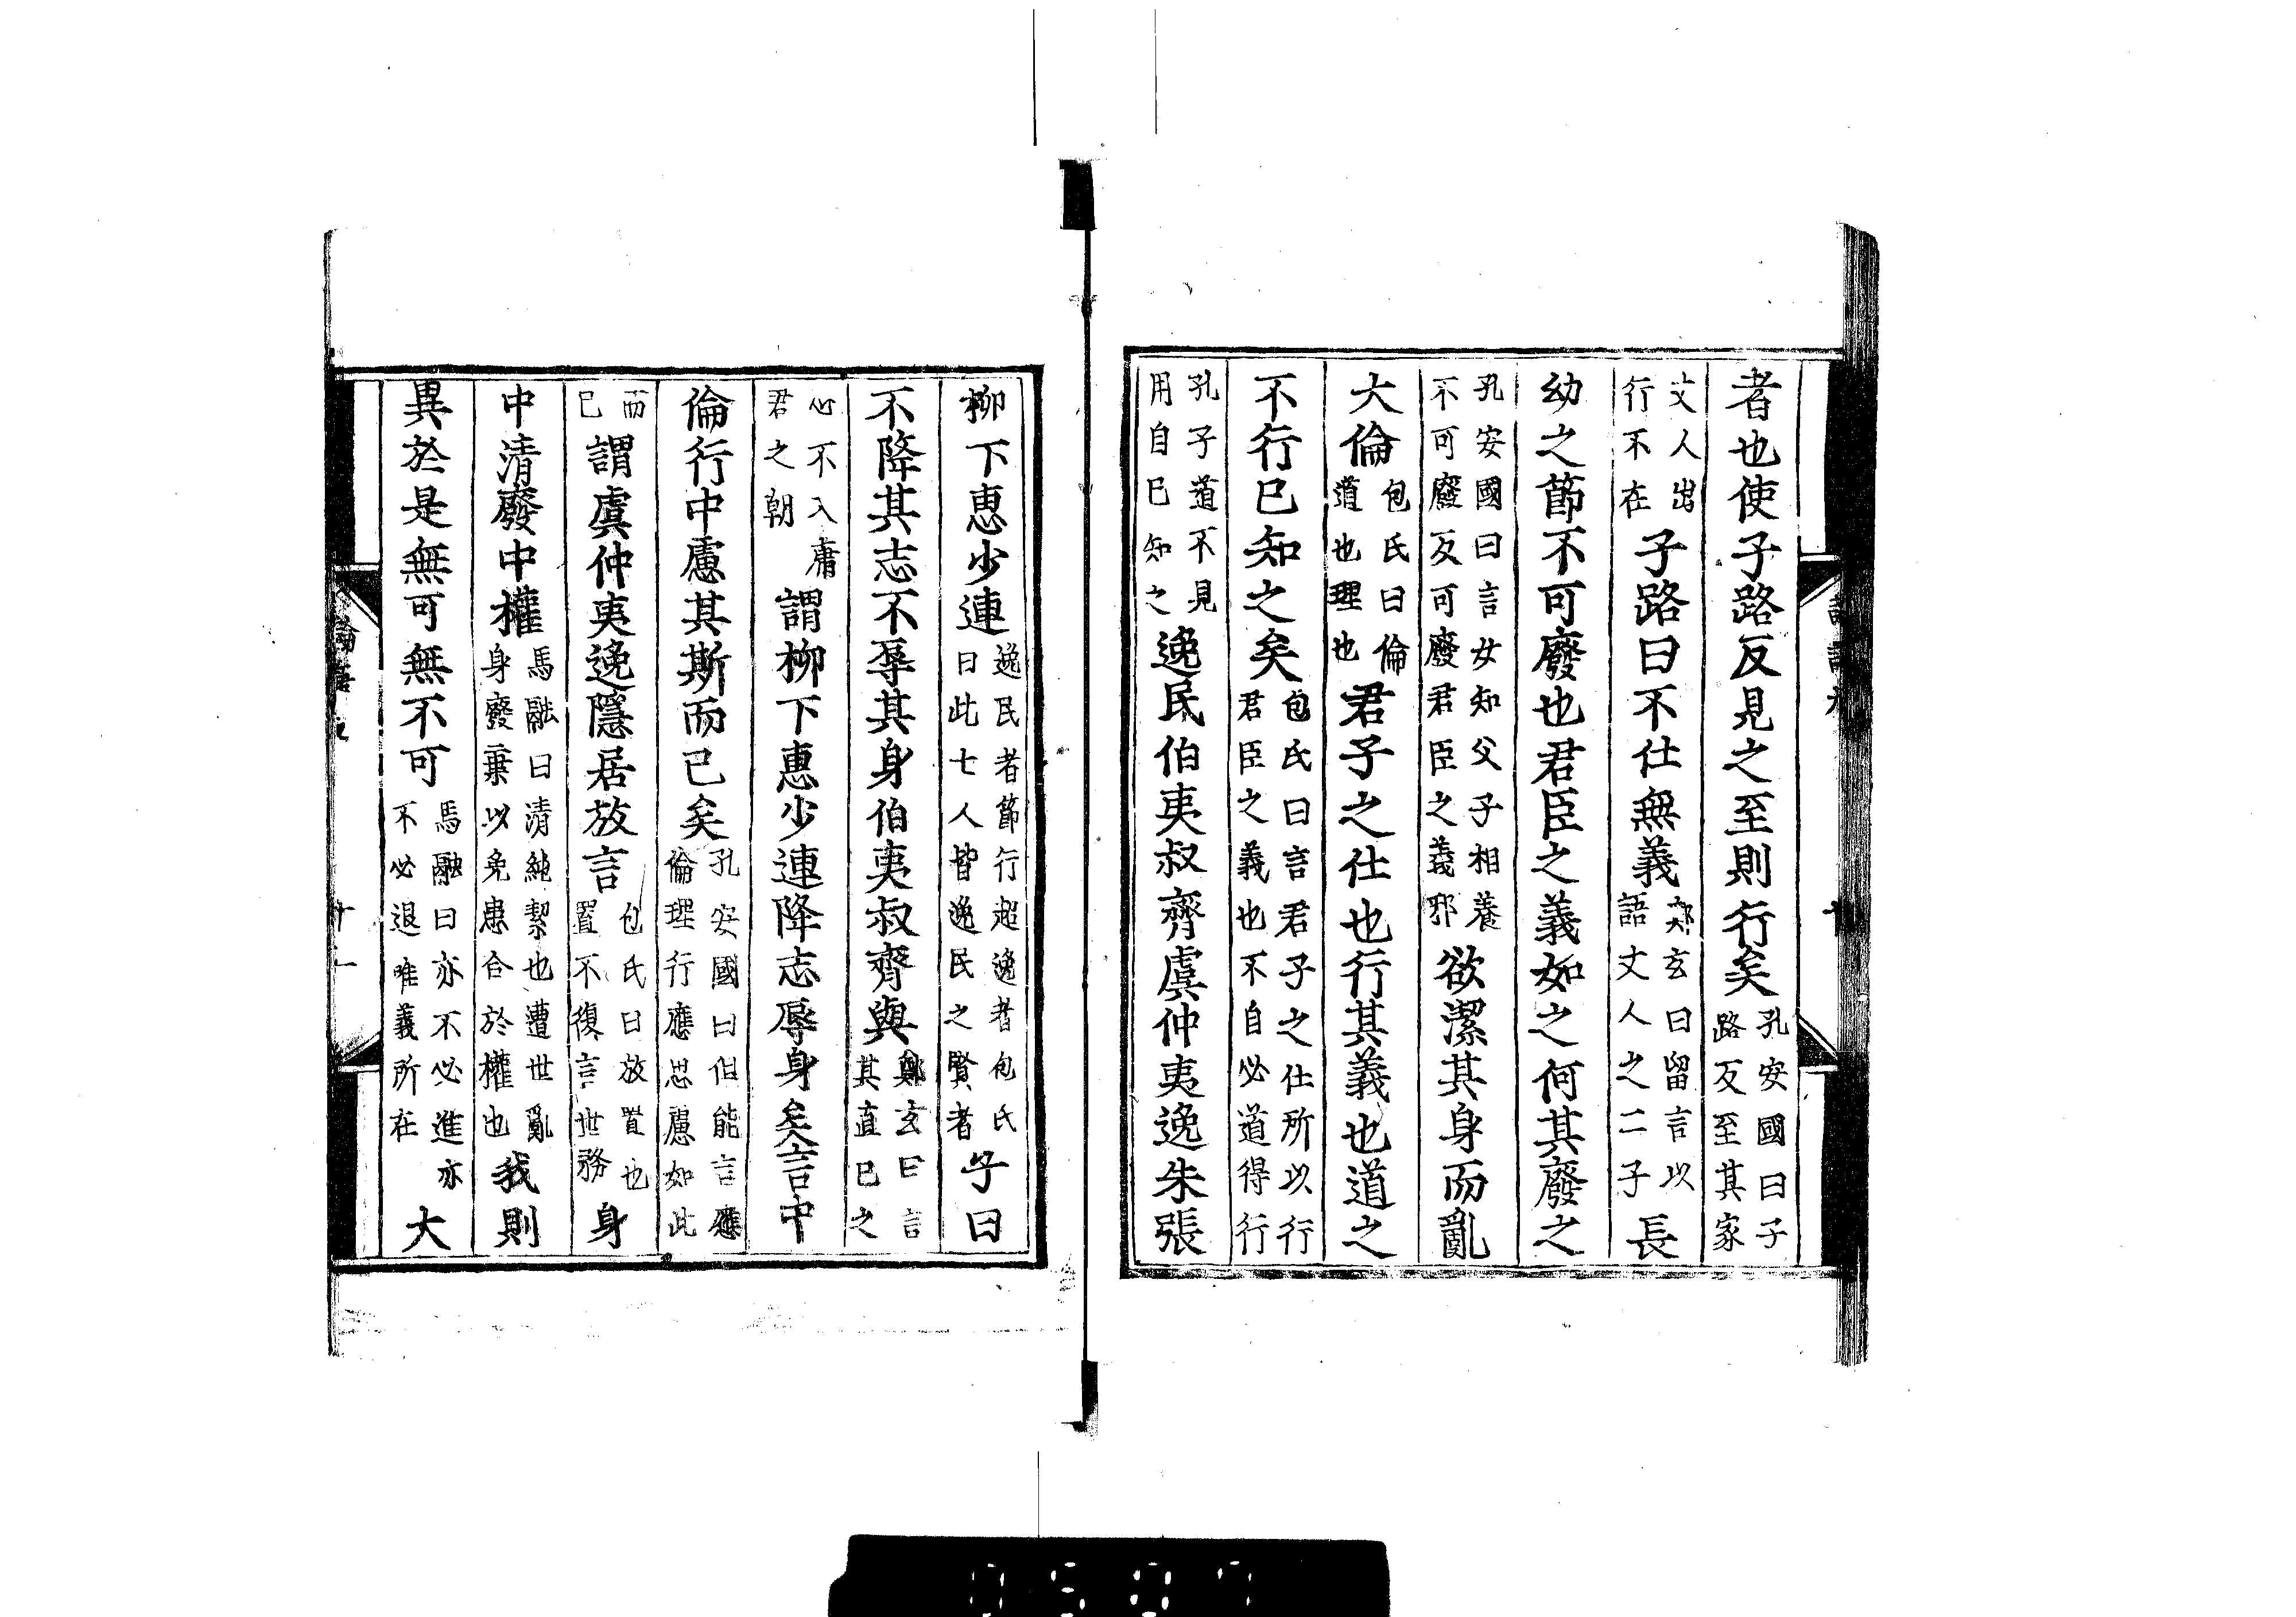 者也使子路反見之至則行矣孔安國曰子路反至其家
丈人出行不在子路曰不仕無義鄭玄曰留言以語丈人之二子長
幼之節不可廢也君臣之義如之何其廢之
孔安國曰言女知父子相養不可廢反可廢君臣之義邪欲潔其身而亂
大倫包氏曰倫道也理也君子之仕也行其義也道之
不行已知之矣包氏曰言君子之仕所以行君臣之義也不自必道得行
孔子道不見用自已知之逸民伯夷叔齊虞仲夷逸朱張
柳下惠少連逸民者節行超逸者包氏曰此七人皆逸民之賢者子曰
不降其志不辱其身伯夷叔齊與鄭玄曰言其直已之
心不入庸君之朝謂柳下惠少連降志辱身矣言中
倫行中慮其斯而已矣孔安國曰但能言應倫理行應思慮如此
而已謂虞仲夷逸隱居放言包氏曰放置也置不復言世務身
中清廢中權馬融曰清純絜也遭世亂身廢棄以免患合於權也我則
異於是無可無不可馬融曰亦不必進亦不必退唯義所在大
論語九
十一